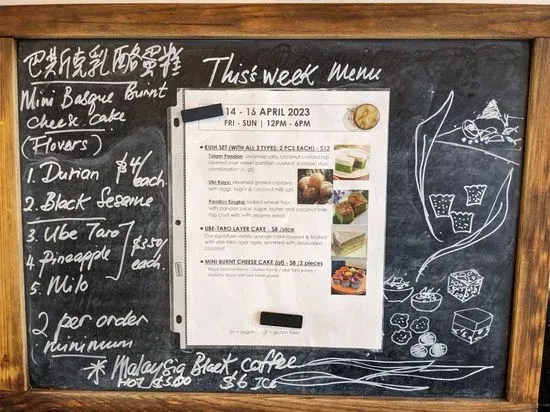 巴斯克乳酪蛋糕
Mini Basque Burnt
cheese cake
(Flavors)
1. Durian
2. Black Sesame
$4/
each.
3. Ube Taro
4. Pineapple
5. Milo
$3.50/
each.
2 per order
minimum
* Malaysia Black coffee
HOT $5.00 $6 ICE
This's week Menu
14 - 16 APRIL 2023
FRI - SUN | 12PM - 6PM
KUIH SET (WITH ALL 3 TYPES: 2 PCS EACH) - $12
Talam Pandan: steamed salty coconut custard top
layered over sweet pandan custard; a classic duo
combination (v, gf)
Ubi Kayu: steamed grated cassava
with egg, sugar & coconut milk (gf)
Pandan Bingka: baked wheat flour
with pandan juice, sugar, butter and coconut milk
top crust with sesame seeds
UBE-TARO LAYER CAKE - $8 /slice
Our signature vanilla sponge cake layered & frosted
with ube-taro agar agar, sprinkled with desiccated
coconut
MINI BURNT CHEESE CAKE (gf) - $8 /2 pieces
Black sesame flavor / Durian flavor / Ube Taro puree /
(v) = vegan gf = gluten free